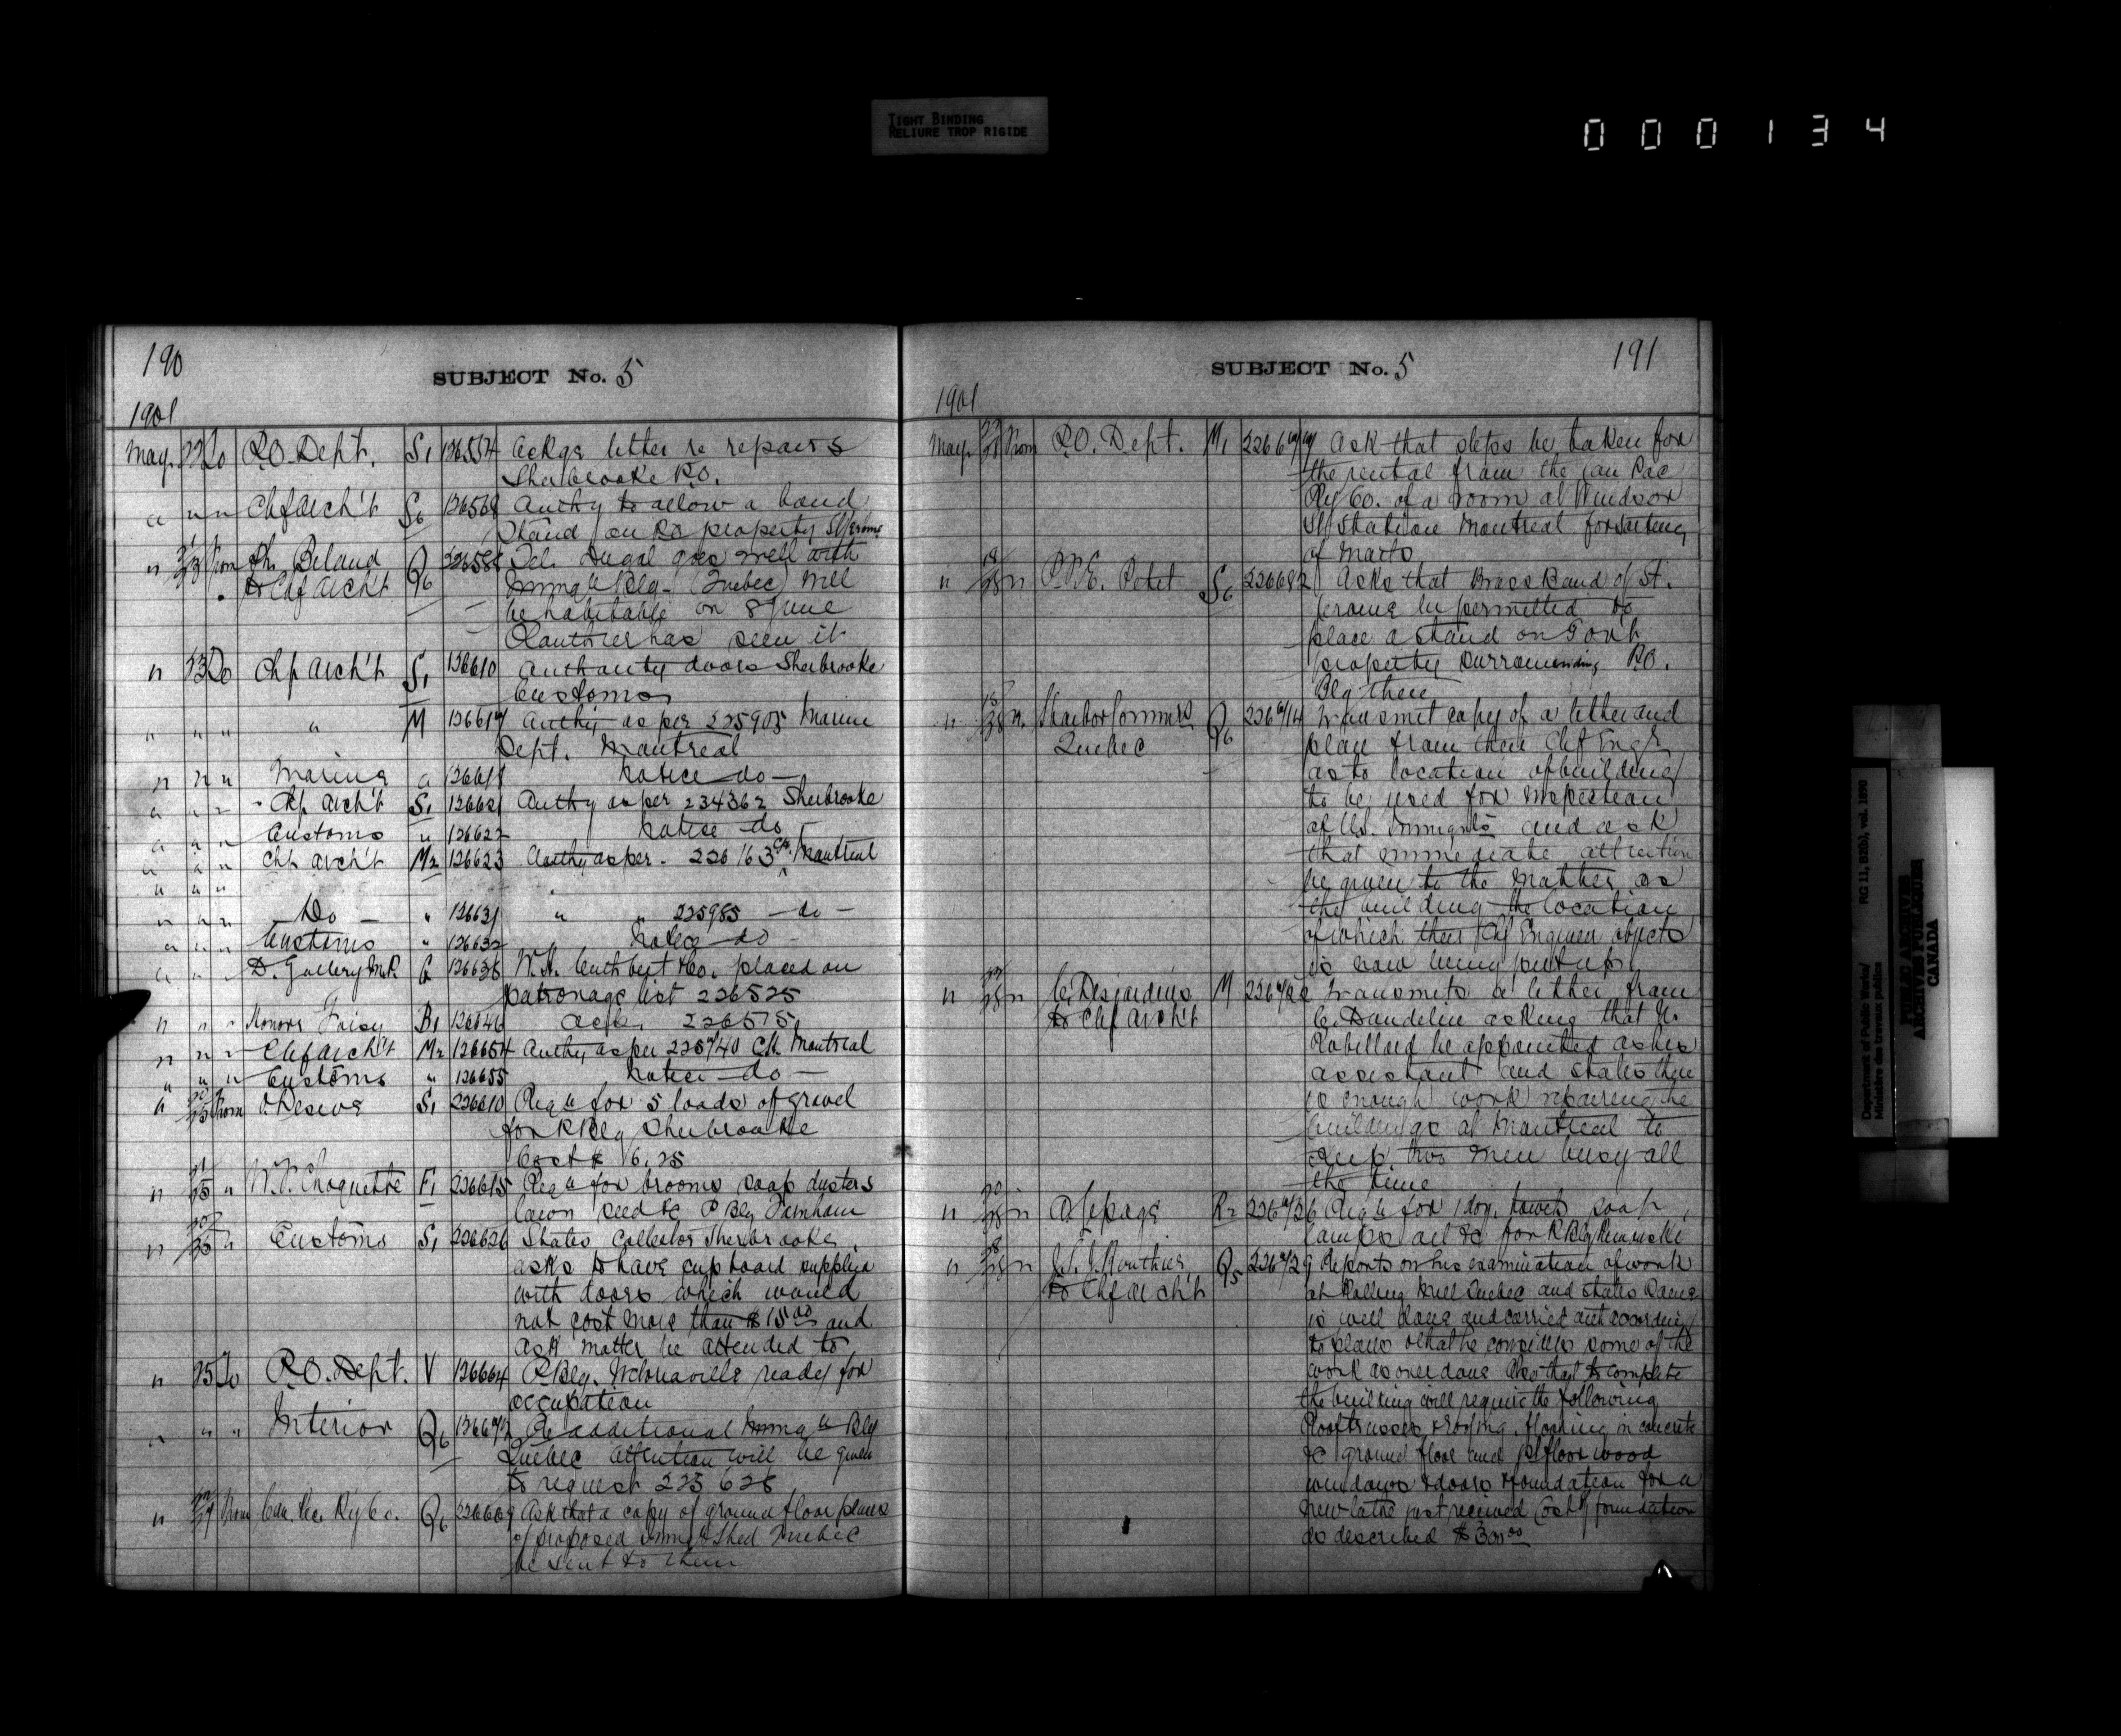 TIGHT BINDING
RELIURE TROP RIGIDE
000134
190
SUBJECT No. 5
1901
May. 22 To P.O. Dept. S1 126554 Ackgs letter re repairs
Sherbrooke P.O.
" " " Chf Arch't S6 126568 Authy to allow a band
stand on P.O. property St Jerome
" From Beland Q6 226588 Tel. Dugal goes well with
to Chf Arch't Immigt Blg. (Quebec) will
be habitable on 8 June
has seen it
" 23 To Chf Arch't S1 126610 Authority doors Sherbrooke
Customs
" " " " M 126617 Authy as per 225905 Marine
Dept. Montreal
" " " Marine a 126618 Notice do —
" " " Chf Arch't S1 126621 Authy as per 234362 Sherbrooke
" " " Customs " 126622 Notice do —
" " " Chf Arch't M2 126623 Authy as per 226163 C.H. Montreal
" " "
" " " — Do — " 126631 " " 225985 — do —
" " " Customs " 126632 Notice do —
" " D. Gallery M.P. G 126638 W.H. Cuthbert & Co. placed on
patronage list 226525
" " " Honore Foisy B1 126646 Ack. 226575
" " " Chf Arch't M2 126654 Authy as per 225740 C.H. Montreal
" " " Customs " 126655 Notice do —
" From S1 226610 Reqn for 5 loads of gravel
for P Blg Sherbrooke
Cost $ 6.25
" " W.P. Choquette F1 226615 Reqn for brooms soap dusters
lawn seed &c P Blg Farnham
" " Customs S1 226626 States Collector Sherbrooke
asks to have cupboard supplied
with doors which would
not cost more than $15.00 and
ask matter be attended to
" 25 To P.O. Dept. V 126664 P Blg. Victoriaville ready for
occupation
" " " Interior Q6 Re additional Immigt Blg
Quebec attention will be given
to request 225 628
" From Can Pac. Ry Co. Q6 226609 Ask that a copy of ground floor plans
of proposed Immigt Shed Quebec
be sent to them
SUBJECT No. 5
191
1901
May. From P.O. Dept. M1 Ask that steps be taken for
the rental from the Can Pac
Ry Co. of a room at Windsor
St Station Montreal for sorting
of
" " Petit S6 226682 Asks that Brass Band of St.
Jerome be permitted to
place a stand on Gov't
property surrounding P.O.
Blg there
" " Harbor Commrs Q6 Transmit copy of a letter and
Quebec plan from their Chf Engr
as to location of building
to be used for inspection
of U.S. Immigts and ask
that immediate attention
be given to the matter as
the building the location
of which their Chf Engineer objects
is now being put up
" " C. Desjardins M Transmits a letter from
to Chf Arch't C. Dandelin asking that N.
Robillard be appointed as his
assistant and states there
is enough work repairing the
buildings at Montreal to
keep two men busy all
the time
" " A. Lepage R2 Reqn for 1 doz. towels soap,
lamps oil &c for P Blg Rimouski
" " Routhier Q5 Reports on his examination of work
to Chf Arch't at Rolling Mill Quebec and states same
is well done and carried out according
to plans & that he considers some of the
work as over done Also that to complete
the building will require the following
Roof trusses & roofing, flooring in concrete
&c ground floor and 1st floor wood
windows & doors & foundation for a
new lathe just received Cost of foundation
as described
Department of Public Works/ RG 11, B2(b), vol. 1690
Ministère des travaux publics
PUBLIC ARCHIVES
ARCHIVES PUBLIQUES
CANADA